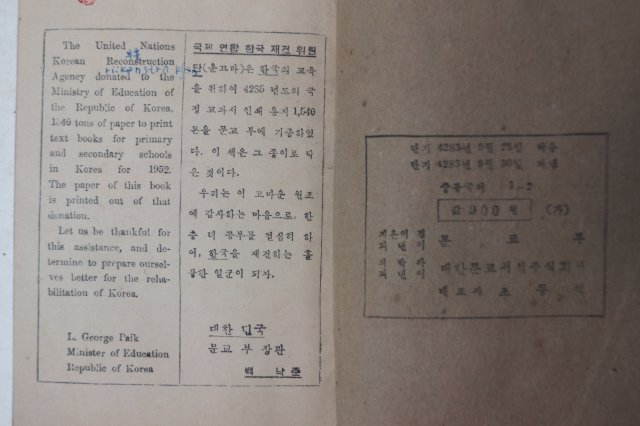 The United Nations
Korean Reconstruction
Agency donated to the
Ministry of Education of
the Republic of Korea.
1540 tons of paper to print
text books for primary
and secondary schools
in Korea for 1952.
The paper of this book
is printed out of that
donation.
Let us be thankful for
this assistance, and de-
termine to prepare oursel-
ves better for the reha-
bilitation of Korea.
L. George Paik
Minister of Education
Republic of Korea
국제 연합 한국 재건 위원
단(운끄라)은 한국의 교육
을 위하여 4285 년도의 국
정 교과서 인쇄 용지 1,540
톤을 문교 부에 기증하였
다. 이 책은 그 종이로 박
은 것이다.
우리는 이 고마운 원조
에 감사하는 마음으로, 한
층 더 공부를 열심히 하
여, 한국을 재건하는 훌
륭한 일군이 되자.
대한 민국
문교 부 장관
백 낙 준
단기 4285년 9월 25일 박음
단기 4285년 9월 30일 펴냄
중등국어 1-2
값 900 원 (가)
지은이 겸
펴낸이 문 교 부
박아
펴낸이 대한문교서적주식회사
대표자 조 동 식